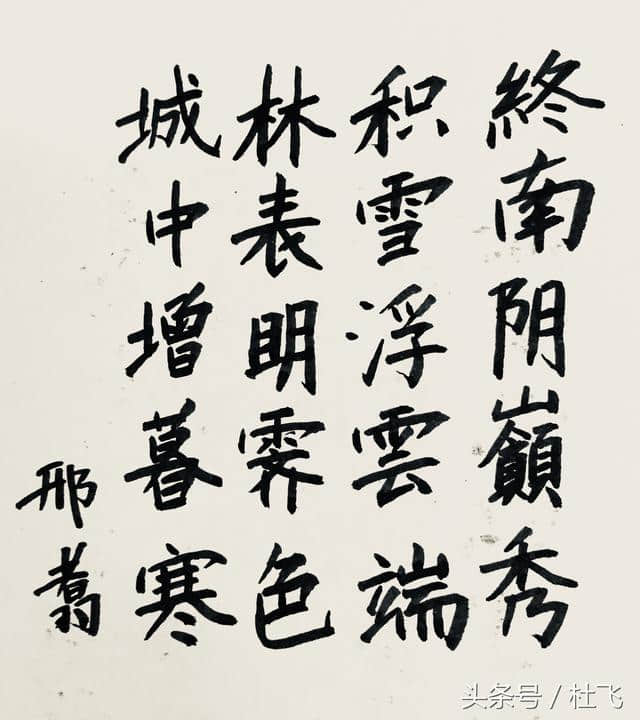 終南阴嶺秀
积雪浮雲端
林表明霁色
城中增暮寒
邢翥
头条号 / 杜飞